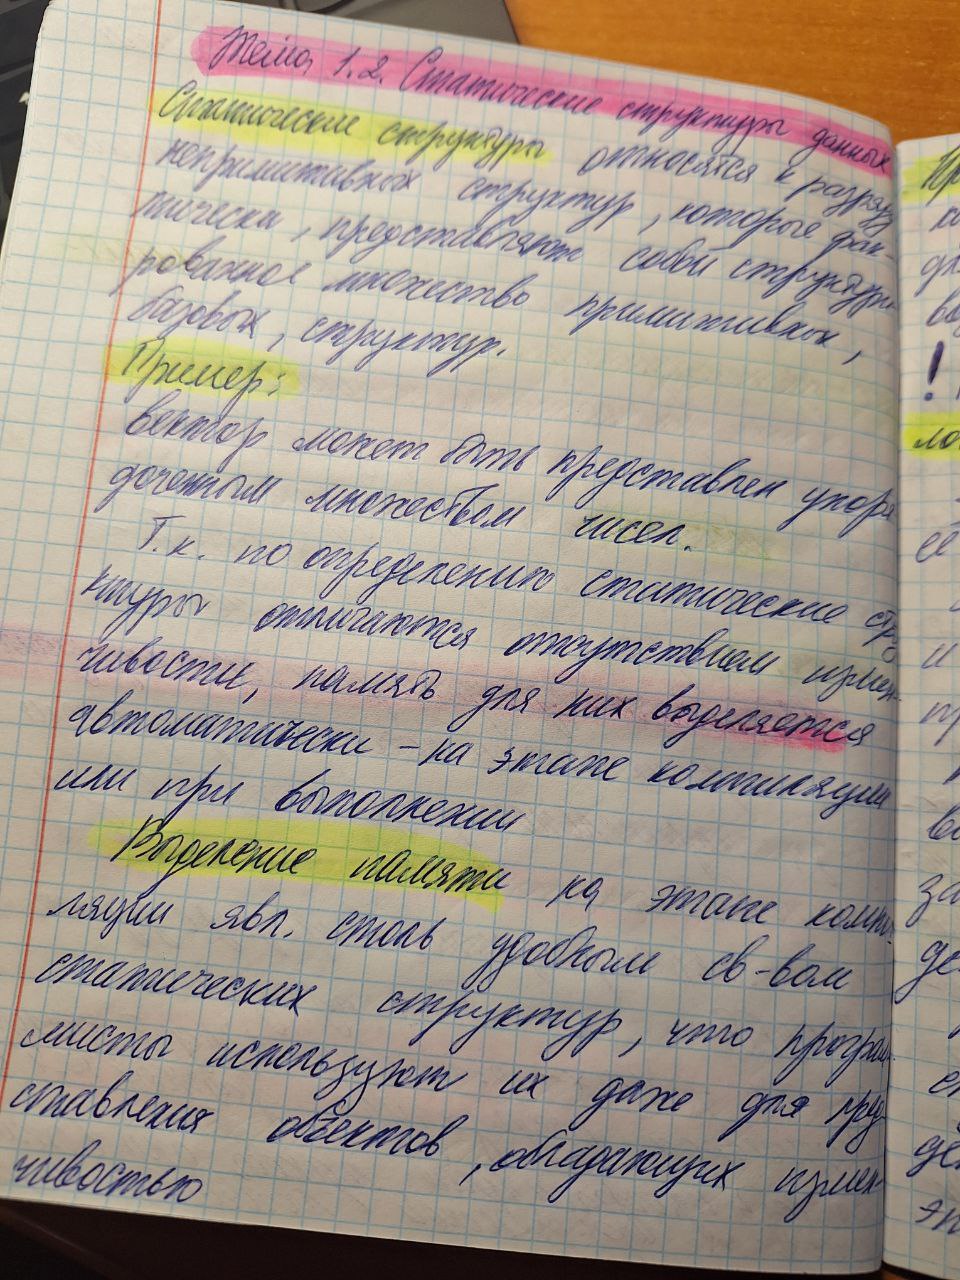 Тема 1.2. Статические структуры данных
Статические структуры относятся к разряду
непримитивных структур, которые фак-
тически, представляют собой структури-
рованное множество примитивных,
базовых, структур.
Пример:
вектор может быть представлен упоря
доченным множеством чисел.
Т.к. по определению статические стру
ктуры отличаются отсутствием измен-
чивости, память для них выделяется
автоматически – на этапе компиляции
или при выполнении
Выделение памяти на этапе компи-
ляции явл. столь удобным св-вом
статических структур, что програм-
мисты используют их даже для пред
ставления объектов, обладающих измен-
чивостью
!
её
и
за